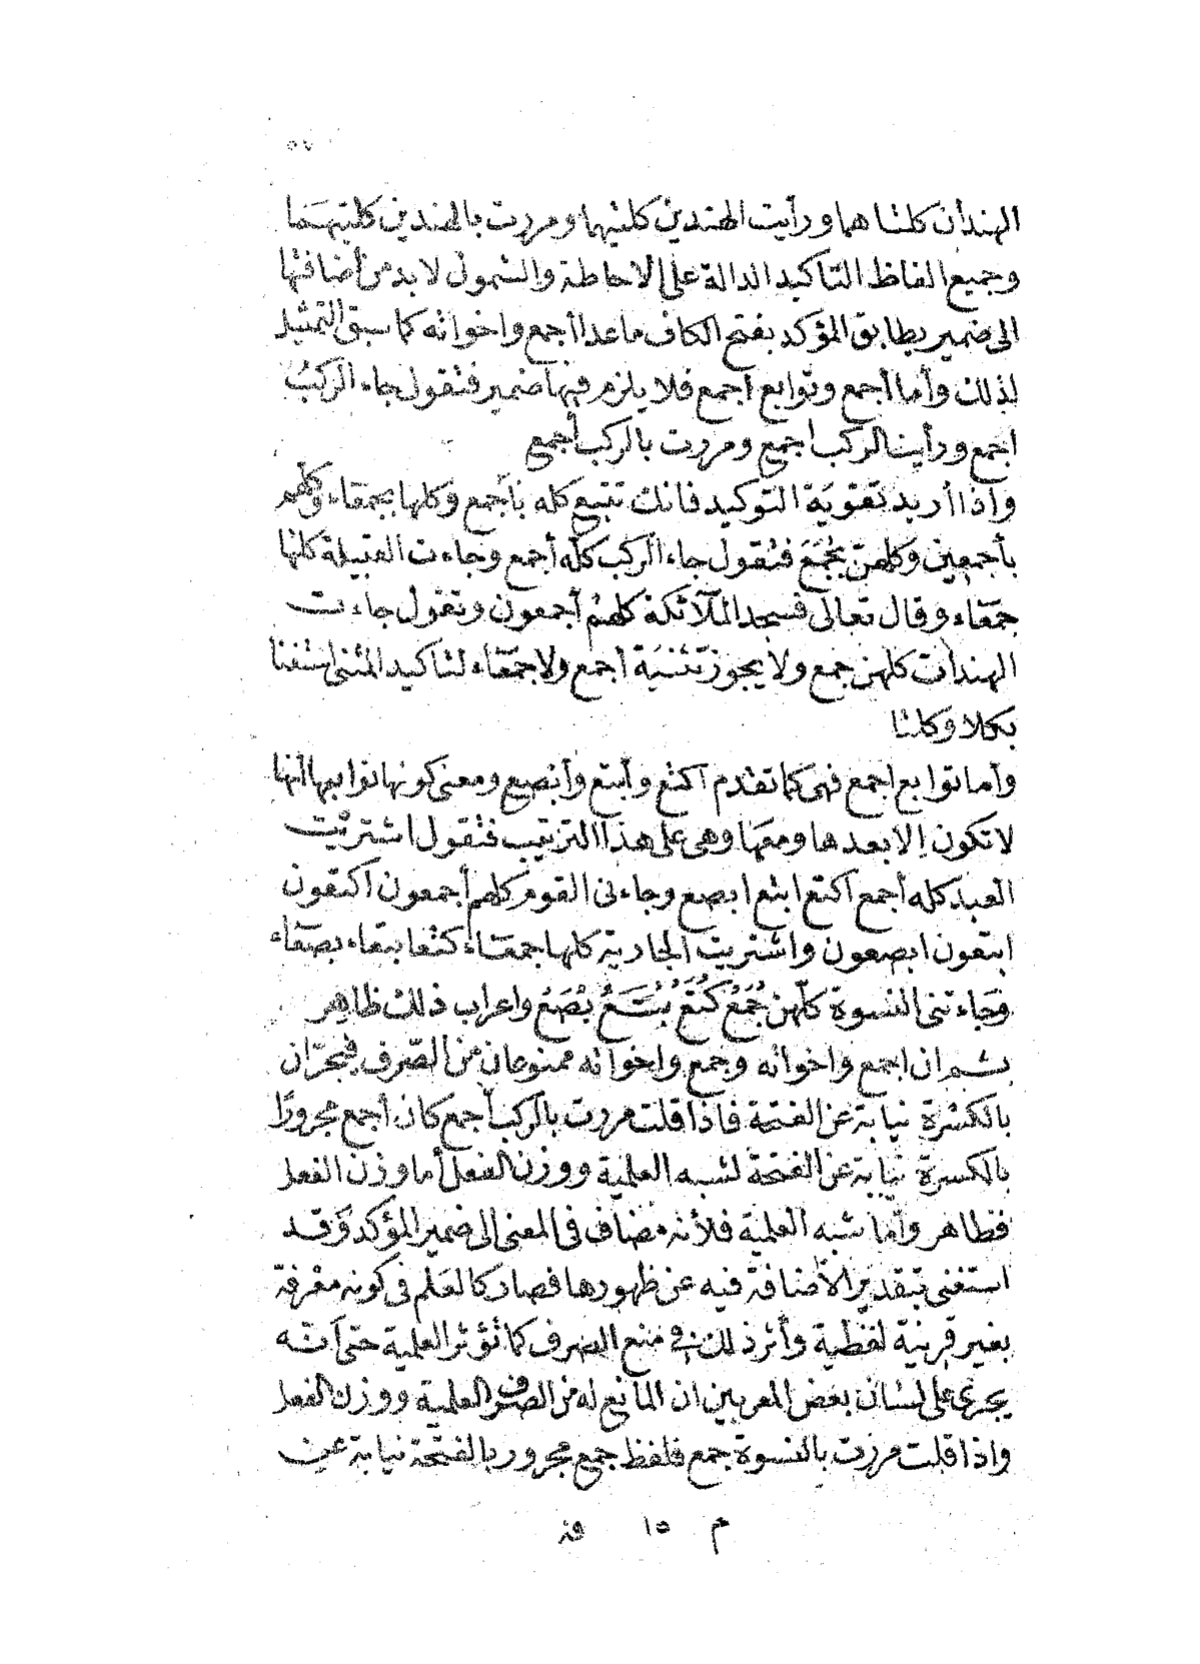 ٥٧
الهندان كلتاهما ورأيت الهندين كلتيهما ومررت بالهندين كلتيهما
وجميع الفاظ التاكيد الدالة على الاحاطة والشمول لابد من أضافتها
الى ضمير يطابق المؤكد بفتح الكاف ماعدا أجمع واخواته كما سبق التمثيل
لذلك وأما أجمع وتوابع أجمع فلا يلزم فيها ضمير فتقول جاء الركبُ
اجمع ورأيت الركب اجمع ومررت بالركب أجمع
واذا أريد تقوية التوكيد فانك تتبع كله بأجمع وكلها بجمعاء وكلهم
بأجمعين وكلهنّ بجُمَعَ فتقول جاء الركب كله أجمع وجاءت القبيلة كلها
جمعاء وقال تعالى فسجد الملآئكة كلهم أجمعون وتقول جاءت
الهندات كلهن جمع ولا يجوز تثنية أجمع ولا جمعاء لتاكيد المثنى استغنا
بكلا وكلتا
وأما توابع اجمع فهى كما تقدم اكتع وأبتع وأبصع ومعنى كونها توابعها أنها
لا تكون إلا بعدها ومعها وهى على هذا الترتيب فتقول اشتريت
العبد كله أجمع اكتع ابتع ابصع وجاءنى القوم كلهم أجمعون اكتعون
ابتعون ابصعون واشتريت الجارية كلها جمعاء كتعا بتعاء بصعاء
وجاءتنى النسوة كلّهن جُمَعُ كُتَعُ بُتَعُ بُصَعُ واعراب ذلك ظاهر
ثم ان اجمع واخواته وجمع واخواته ممنوعان من الصّرف فيجرّان
بالكسرة نيابة عن الفتحة فاذا قلت مررت بالركب أجمع كان أجمع مجرورًا
بالكسرة نيابة عن الفتحة لشبه العلمية ووزن الفعل أما وزن الفعل
فظاهر وأما شبه العلمية فلأنه مضاف فى المعنى الى ضمير المؤكد وقد
استغنى بتقدير الأضافة فيه عن ظهورها فصار كالعَلَم فى كونه معْرفة
بغير قرينة لفظية وأثر ذلك فى منع الصرف كما تؤثر العلمية حتى أنه
يجرى على لسان بعض المعربين ان المانع له من الصرف العلمية ووزن الفعل
واذا قلت مررت بالنسوة جمع فلفظ جمع مجرور بالفتحة نيابة عن
م ١٥ فر